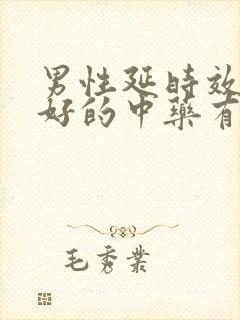 男性延时效
好的中藥有
毛秀業